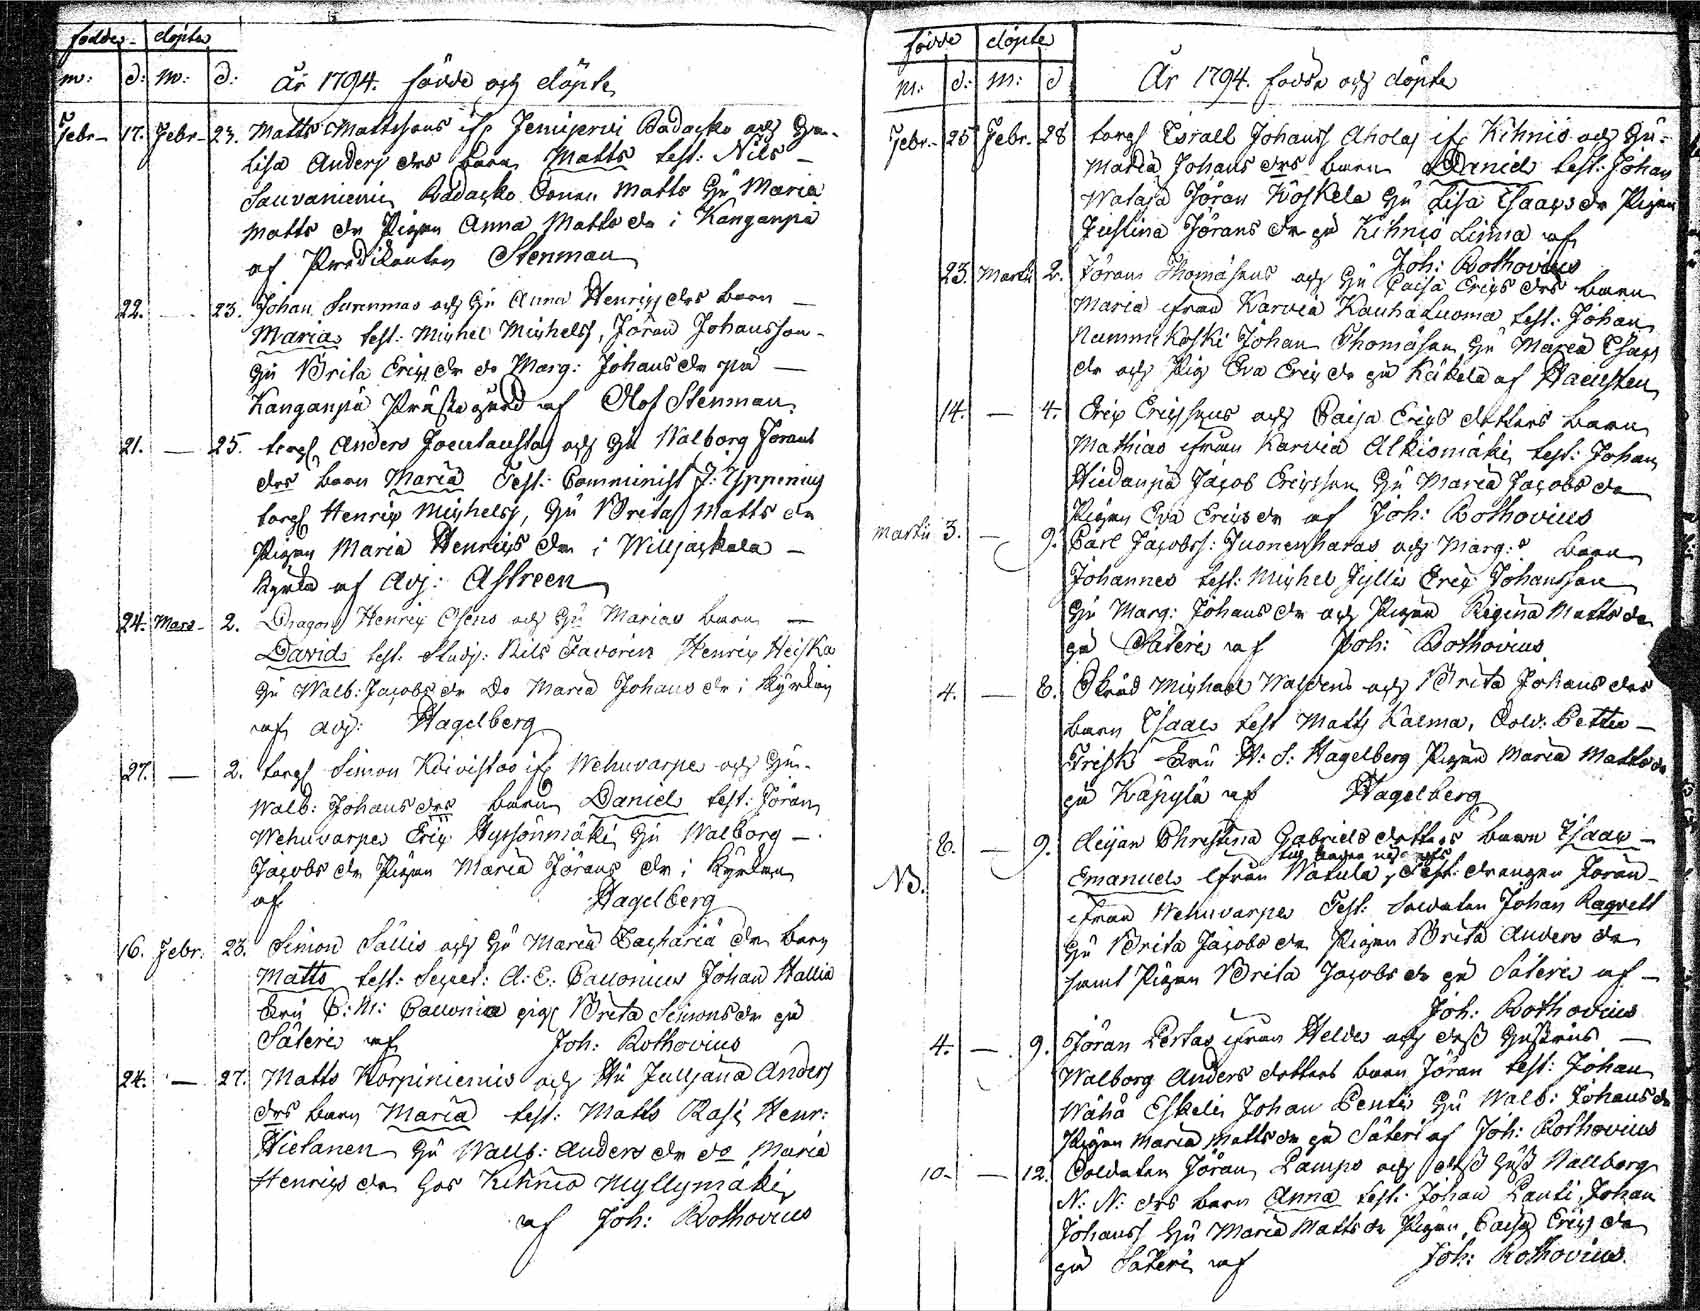 födde döpte
m: d: m: d: År 1794. födde och döpte
Febr- 17. Febr- 23. Matts Mattssons if Jemijervi barn
Lisa Anders drs barn Matts test: Nils -
Matts Hu Maria
Matts dr Pigan Anna Matts dr i Kanganpä
af Predikanten Stenman
22. — 23. Johan och Hu Anna Henrics drs barn —
Maria test: Michel Michelss, Jöran Johansson -
Hu Brita Erics dr do Marg: Johans dr på —
Kanganpä Prästegård af Olof Stenman.
21. — 25. torp Anders och Hu Walborg Jörans
drs barn Maria Test: Communist J:
torp Henric Michelss, Hu Brita Matts dr
Pigan Maria Henrics dr i Williaskala —
Kyrka af Adj: Astreen
24. Mars - 2. Dragon Henric och Hu Marias barn —
David test: Studj: Nils Favorin Henric Heiska
Hu Walb: Jacobs dr Do Maria Johans dr i Kyrkan
af adj: Hagelberg
27. — 2. torp Simon Koivistos if Wehuvarpe och Hu-
Walb: Johans drs barn Daniel test: Jöran
Wehuvarpe Eric Hu Walborg —
Jacobs dr Pigan Maria Jörans dr i Kyrkan
af Hagelberg
16. Febr. 23. Simon Sällis och Hu Maria Zacharia dr barn
Matts test: A: E: Pauonius Johan Hallia
Fru Pauonia pig Brita Simons dr på
Säteri af Joh: Rothovius
24. — 27. Matts Korpiniemis och Hu Julljana Anders
drs barn Maria test: Matts Rasi Henr:
Hietanen Hu Wallb: Anders dr do Maria
Henrics dr hos Kihniö Myllymäki
af Joh: Rothovius
födde döpte
M: d: M: d År 1794. födde och döpte
Febr- 25 Febr. 28 torp Esrael Johanss Aholas if Kihniö och Hu-
Maria Johans drs barn Daniel test: Johan
Wataja Jöran Koskela Hu Lisa Isaacs dr Pigan
Justina Jörans dr på Kihniö Linna af
Joh: Rothovius
23. Martii 2. Jöran Thomasons och Hu Caisa Erics drs barn
Maria ifrån Karvia Kauhaluoma test: Johan
Nummikoski Johan Thomason Hu Maria Isacs
dr och Pig Eva Erics dr på Keikela af
14. — 4. Eric Ericssons och Caisa Erics dotters barn
Mathias ifrån Karvia Alkiomäki test: Johan
Hiedanpä Jacob Ericsson Hu Maria Jacobs dr
Pigan Eva Erics dr af Joh: Rothovius
Martii 3. — 9. Carl Jacobss: Juonenharas och Marg:s barn
Johannes test: Michel Eric Johansson
Hu Marg: Johans dr och Pigan Regina Matts dr
på Säteri af Joh: Rothovius
4. — 8. Michael Waldens och Brita Johans drs
barn Isaac test Matts Kalma, Sold: Petter —
Frisk Fru H: S: Hagelberg Pigan Maria Matts dr
på Käpylä af Hagelberg
8. — 9. Christina Gabriels dotters barn Isaac —
NB. Emanuel ifrån Watula, drengen Jöran -
ifrån Wehuvarpe Test: Soldaten Johan Ragvett
Hu Brita Jacobs dr Pigan Brita Anders dr
samt Pigan Brita Jacobs dr på Säteri af —
Joh: Rothovius
4. — 9. Jöran Pertas ifrån Heldes och dess Hustrus —
Walborg Anders dotters barn Jöran test: Johan
Wähä Eskeli Johan Penti Hu Walb: Johans dr
Pigan Maria Matts dr på Säteri af Joh: Rothovius
10- — 12. Soldaten Jöran Lamps och dess Hust Wallborg
N: N: drs barn Anna test: Johan Lauti Johan
Johanss Hu Maria Matts dr Pigan Caisa Erics dr
på Säteri af Joh: Rothovius.